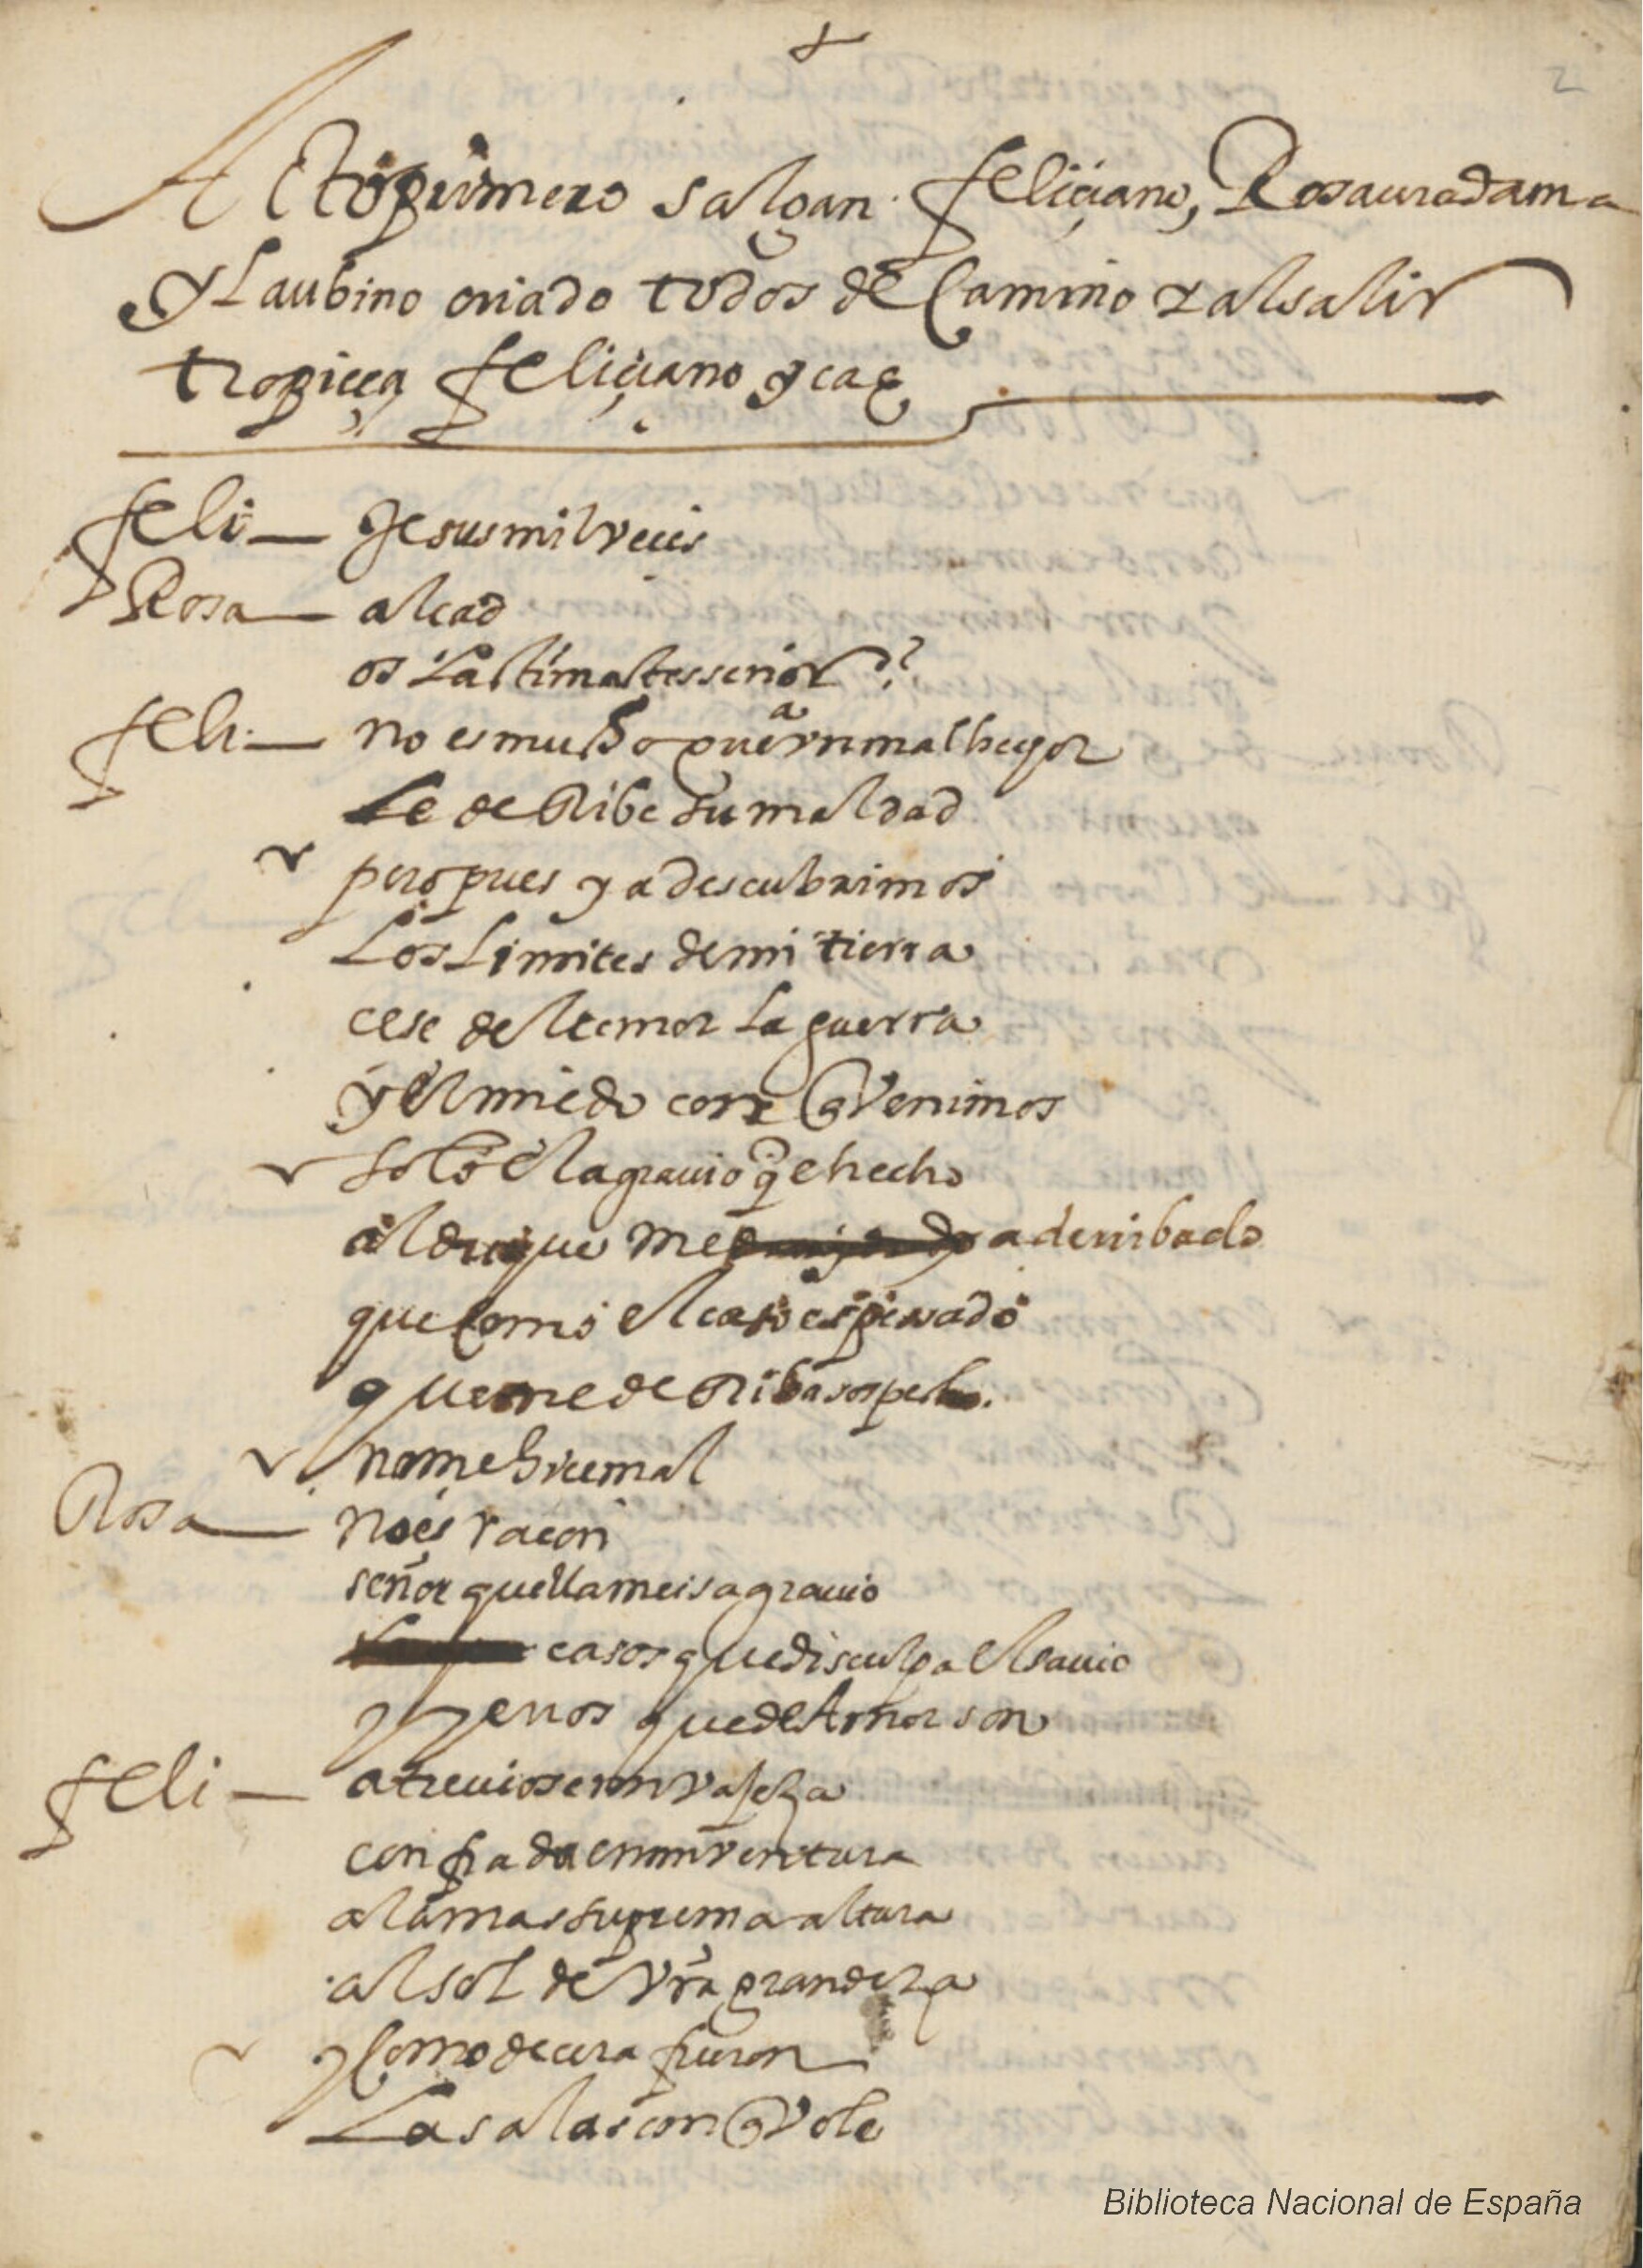 +
2
Acto primero salgan feliçiano, Rosaura dama
y Laubino criado todos de Camino y al salir
tropieça feliçiano y cae
feli — Jesus mil veçes
Rosa — alçad
os Lastimastes señor?
feli — no es mucho que a vn mal hechor
Le deRibe su maldad
pero pues ya descubrimos
Los Limites de mi tierra
cese del temor La guerra
y El miedo con q Venimos
solo El agrauio q e hecho
al duque me a derribado
que como El caso es pesado
que me deRiba sospecho.
no me hiçe mal
Rosa — no es raçon
señor que llameis agrauio
casos que disculpa El sauio
y yerros que de Amor son
feli — atreuiose mi vajeza
confiada en mi ventura
a la mas suprema altura
al sol de vra grandeza
y Como de cera fueron
Las alas con q Vole
Biblioteca Nacional de España